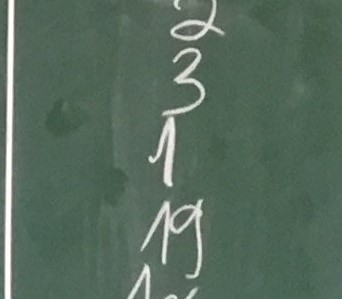 2
3
1
19